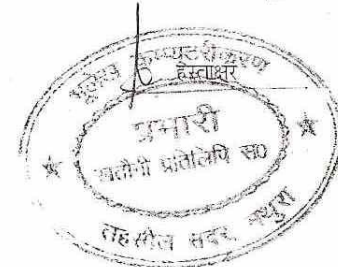 भूलेख कम्प्यूटरीकरण
हस्ताक्षर
प्रभारी
खतौनी प्रतिलिपि स०
तहसील सदर, मथुरा